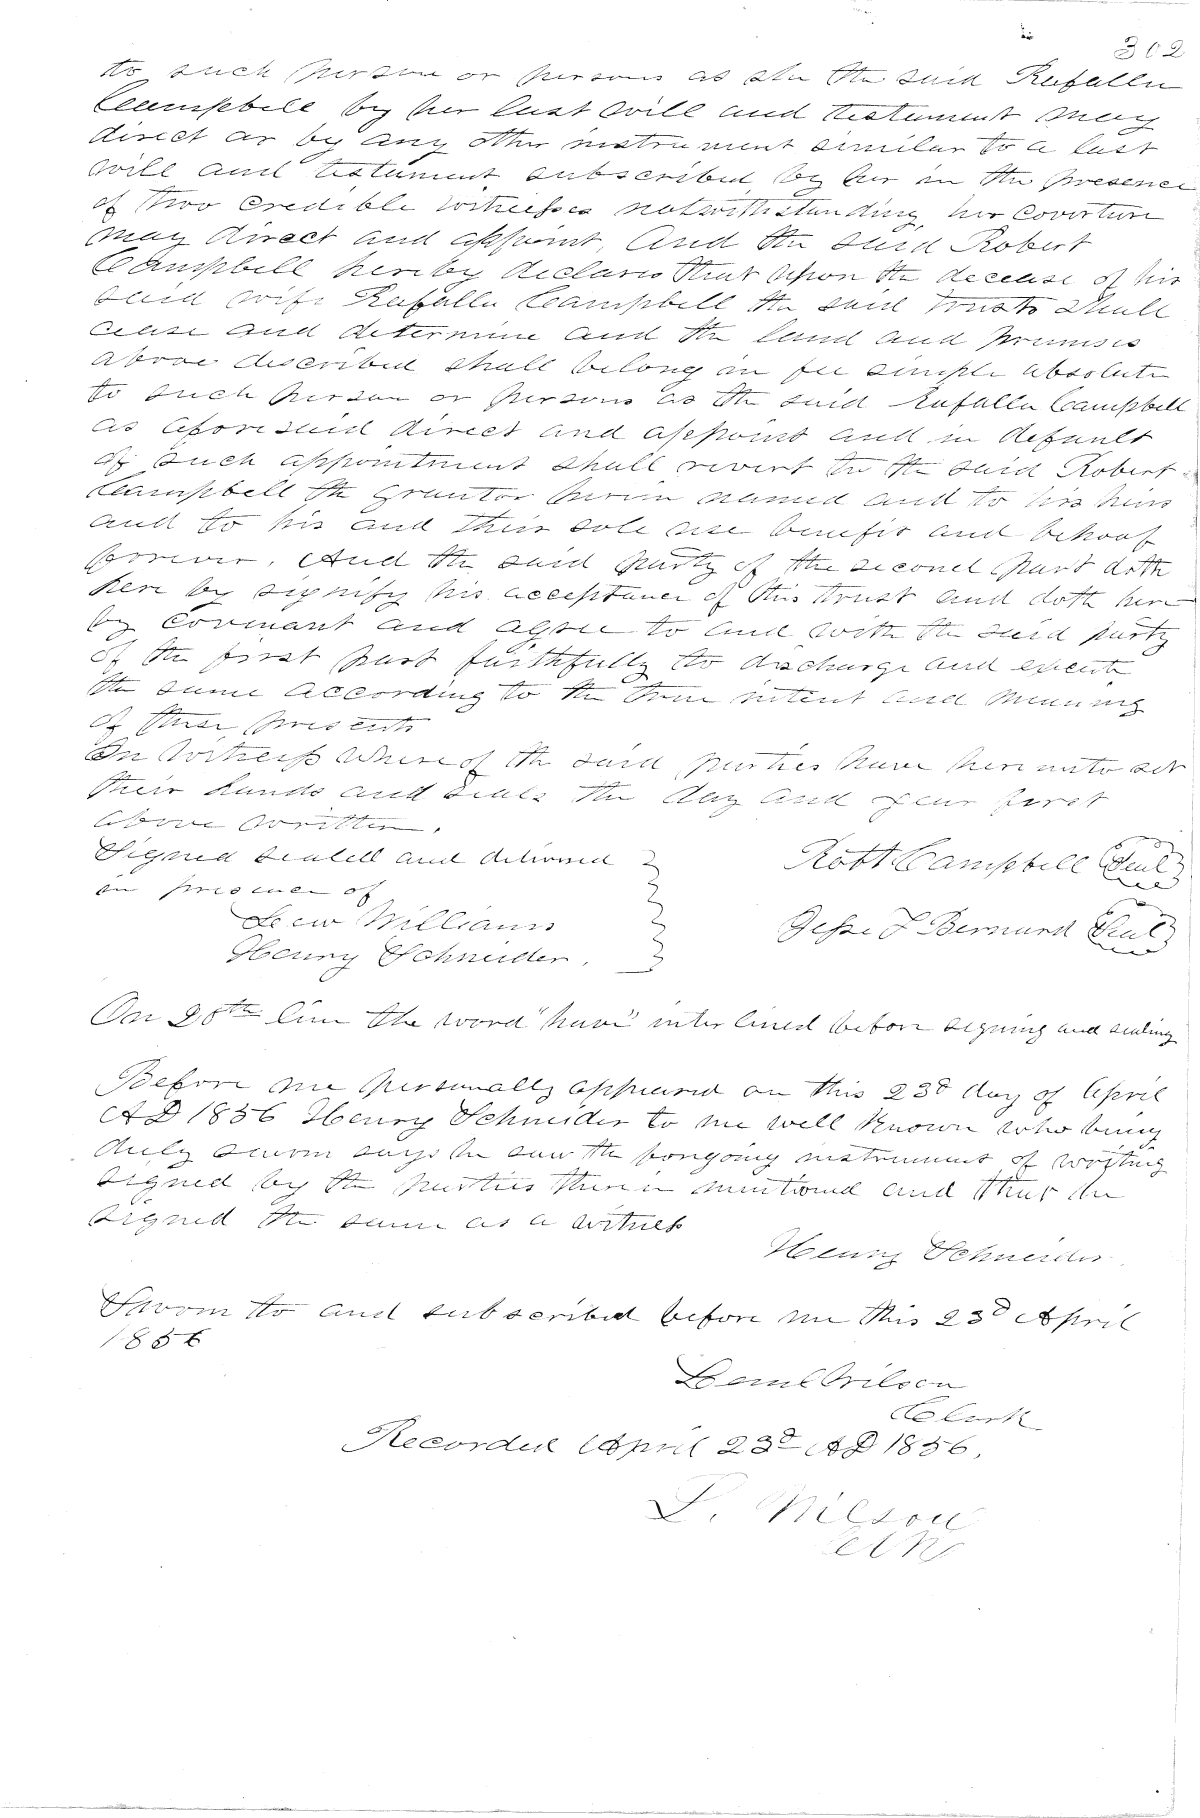 302
to such person or persons as she the said Rafalla
Campbell by her last will and testament may
direct or by any other instrument similar to a last
will and testament subscribed by her in the presence
of two credible witnesses notwithstanding her coverture
may direct and appoint, And the said Robert
Campbell hereby declares that upon the decease of his
said wife Rafalla Campbell the said trusts shall
cease and determine and the land and premises
above described shall belong in fee simple absolute
to such person or persons as the said Rafalla Campbell
as aforesaid direct and appoint and in default
of such appointment shall revert to the said Robert
Campbell the grantor herein named and to his heirs
and to his and their sole use benefit and behoof
forever. And the said party of the second part doth
here by signify his acceptance of this trust and doth here
by covenant and agree to and with the said party
of the first part faithfully to discharge and execute
the same according to the true intent and meaning
of these presents
In Witness Whereof the said parties have here unto set
their hands and seals the day and year first
above written.
Signed sealed and delivered
in presence of
Lew Williams
Henry Schneider.
Robt Campbell Seal
Jesse T Bernard Seal
On 20th line the word "have" inter lined before signing and sealing
Before me personally appeared on this 23d day of April
AD 1856 Henry Schneider to me well known who being
duly sworn says he saw the forgoing instrument of writing
signed by the parties therein mentioned and that he
signed the same as a witness
Henry Schneider
Sworn to and subscribed before me this 23d April
1856
Wilson
Clerk
Recorded April 23d AD 1856.
L. Wilson
Clk